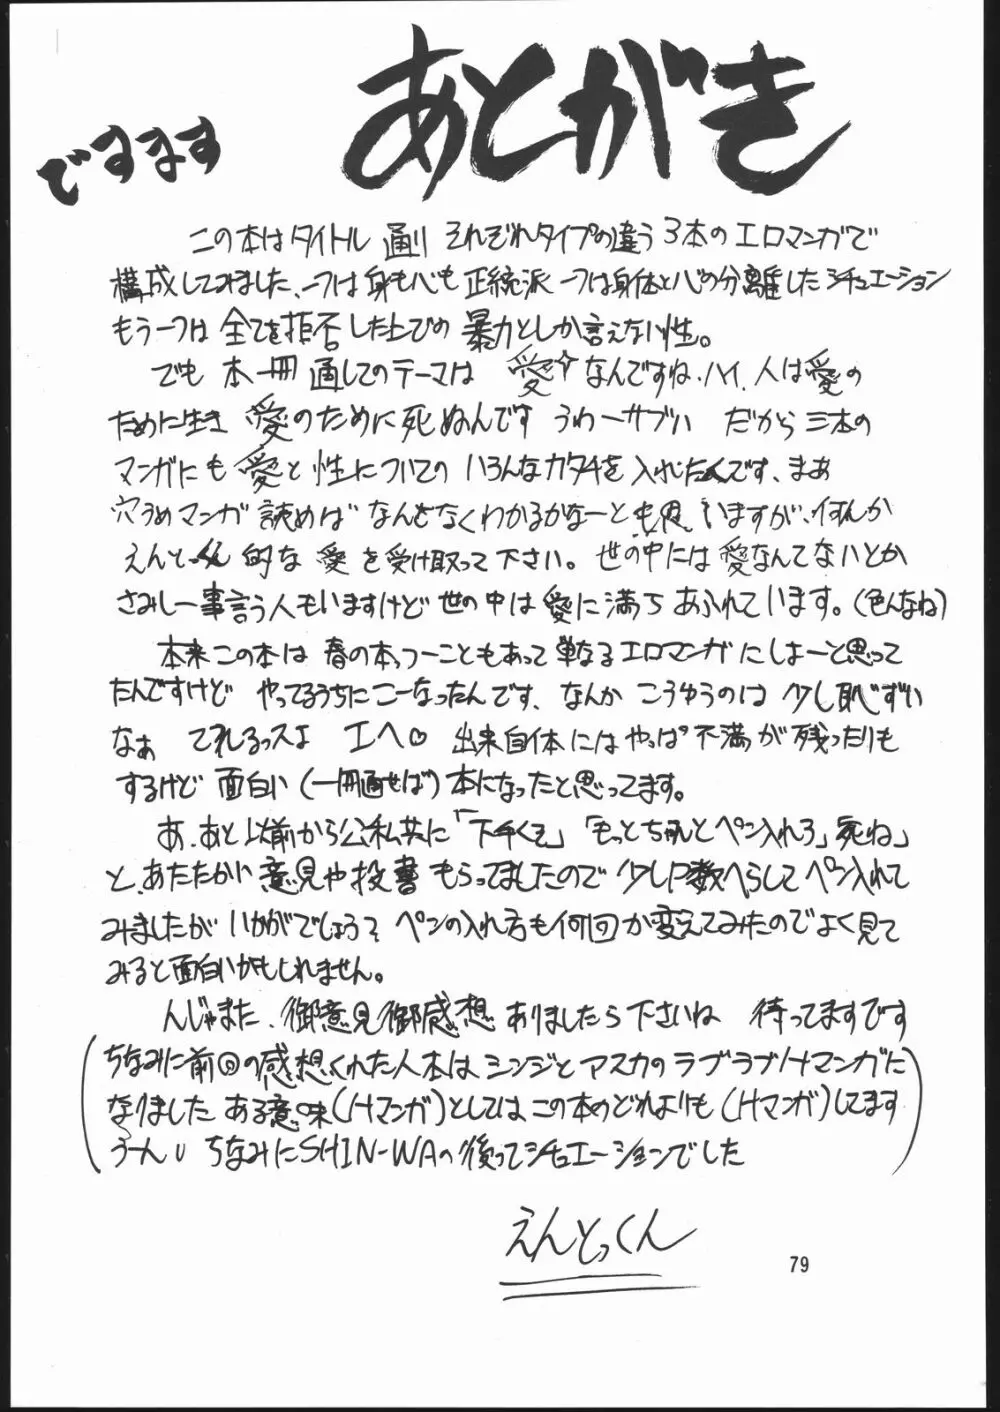 あとがき
ですます
この本はタイトル通り それぞれタイプの違う3本のエロマンガで
構成してみました、一つは身も心も正統派 一つは身体と心の分離したシチュエーション
もう一つは全てを拒否した上での暴力としか言えない性。
でも本一冊通してのテーマは愛なんですね、ハイ、人は愛の
ために生き 愛のために死ぬんです うわーサブい だから三本の
マンガにも愛と性についてのいろんなカタチを入れたんです、まあ
穴うめマンガ読めばなんとなくわかるかなーとも思いますが、何んか
えんとっくん的な愛を受け取って下さい。世の中には愛なんてないとか
さみしー事言う人もいますけど世の中は愛に満ちあふれています。(色んなね)
本来この本は春の本っつーこともあって単なるエロマンガにしよーと思って
たんですけど やってるうちにこーなったんです、なんかこうゆうのは少し恥ずい
なぁ てれるっスよ エヘ♡ 出来自体にはやっぱ不満が残ったりも
するけど面白い(一冊通せば)本になったと思ってます。
あ、あと以前から公私共に「下手くそ」「もっとちゃんとペン入れろ」「死ね」
と、あたたかい意見や投書もらってましたので少しP数へらしてペン入れて
みましたがいかがでしょう? ペンの入れ方も何回か変えてみたのでよく見て
みると面白いかもしれません。
んじゃまた、御意見御感想ありましたら下さいね 待ってますです
(ちなみに前回の感想くれた人本はシンジとアスカのラブラブHマンガに
なりました ある意味(Hマンガ)としてはこの本のどれよりも(Hマンガ)してます
うーん ちなみにSHIN-WAの後ってシチュエーションでした)
えんとっくん
79